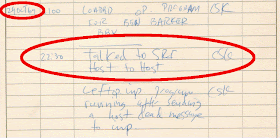 29 Oct 69 100 LOADED OP. PROGRAM CSK
FOR BEN BARKER
BBV
22:30 Talked to SRI CSK
Host to Host
Left op. imp. program CSK
running after sending
a host dead message
to imp.